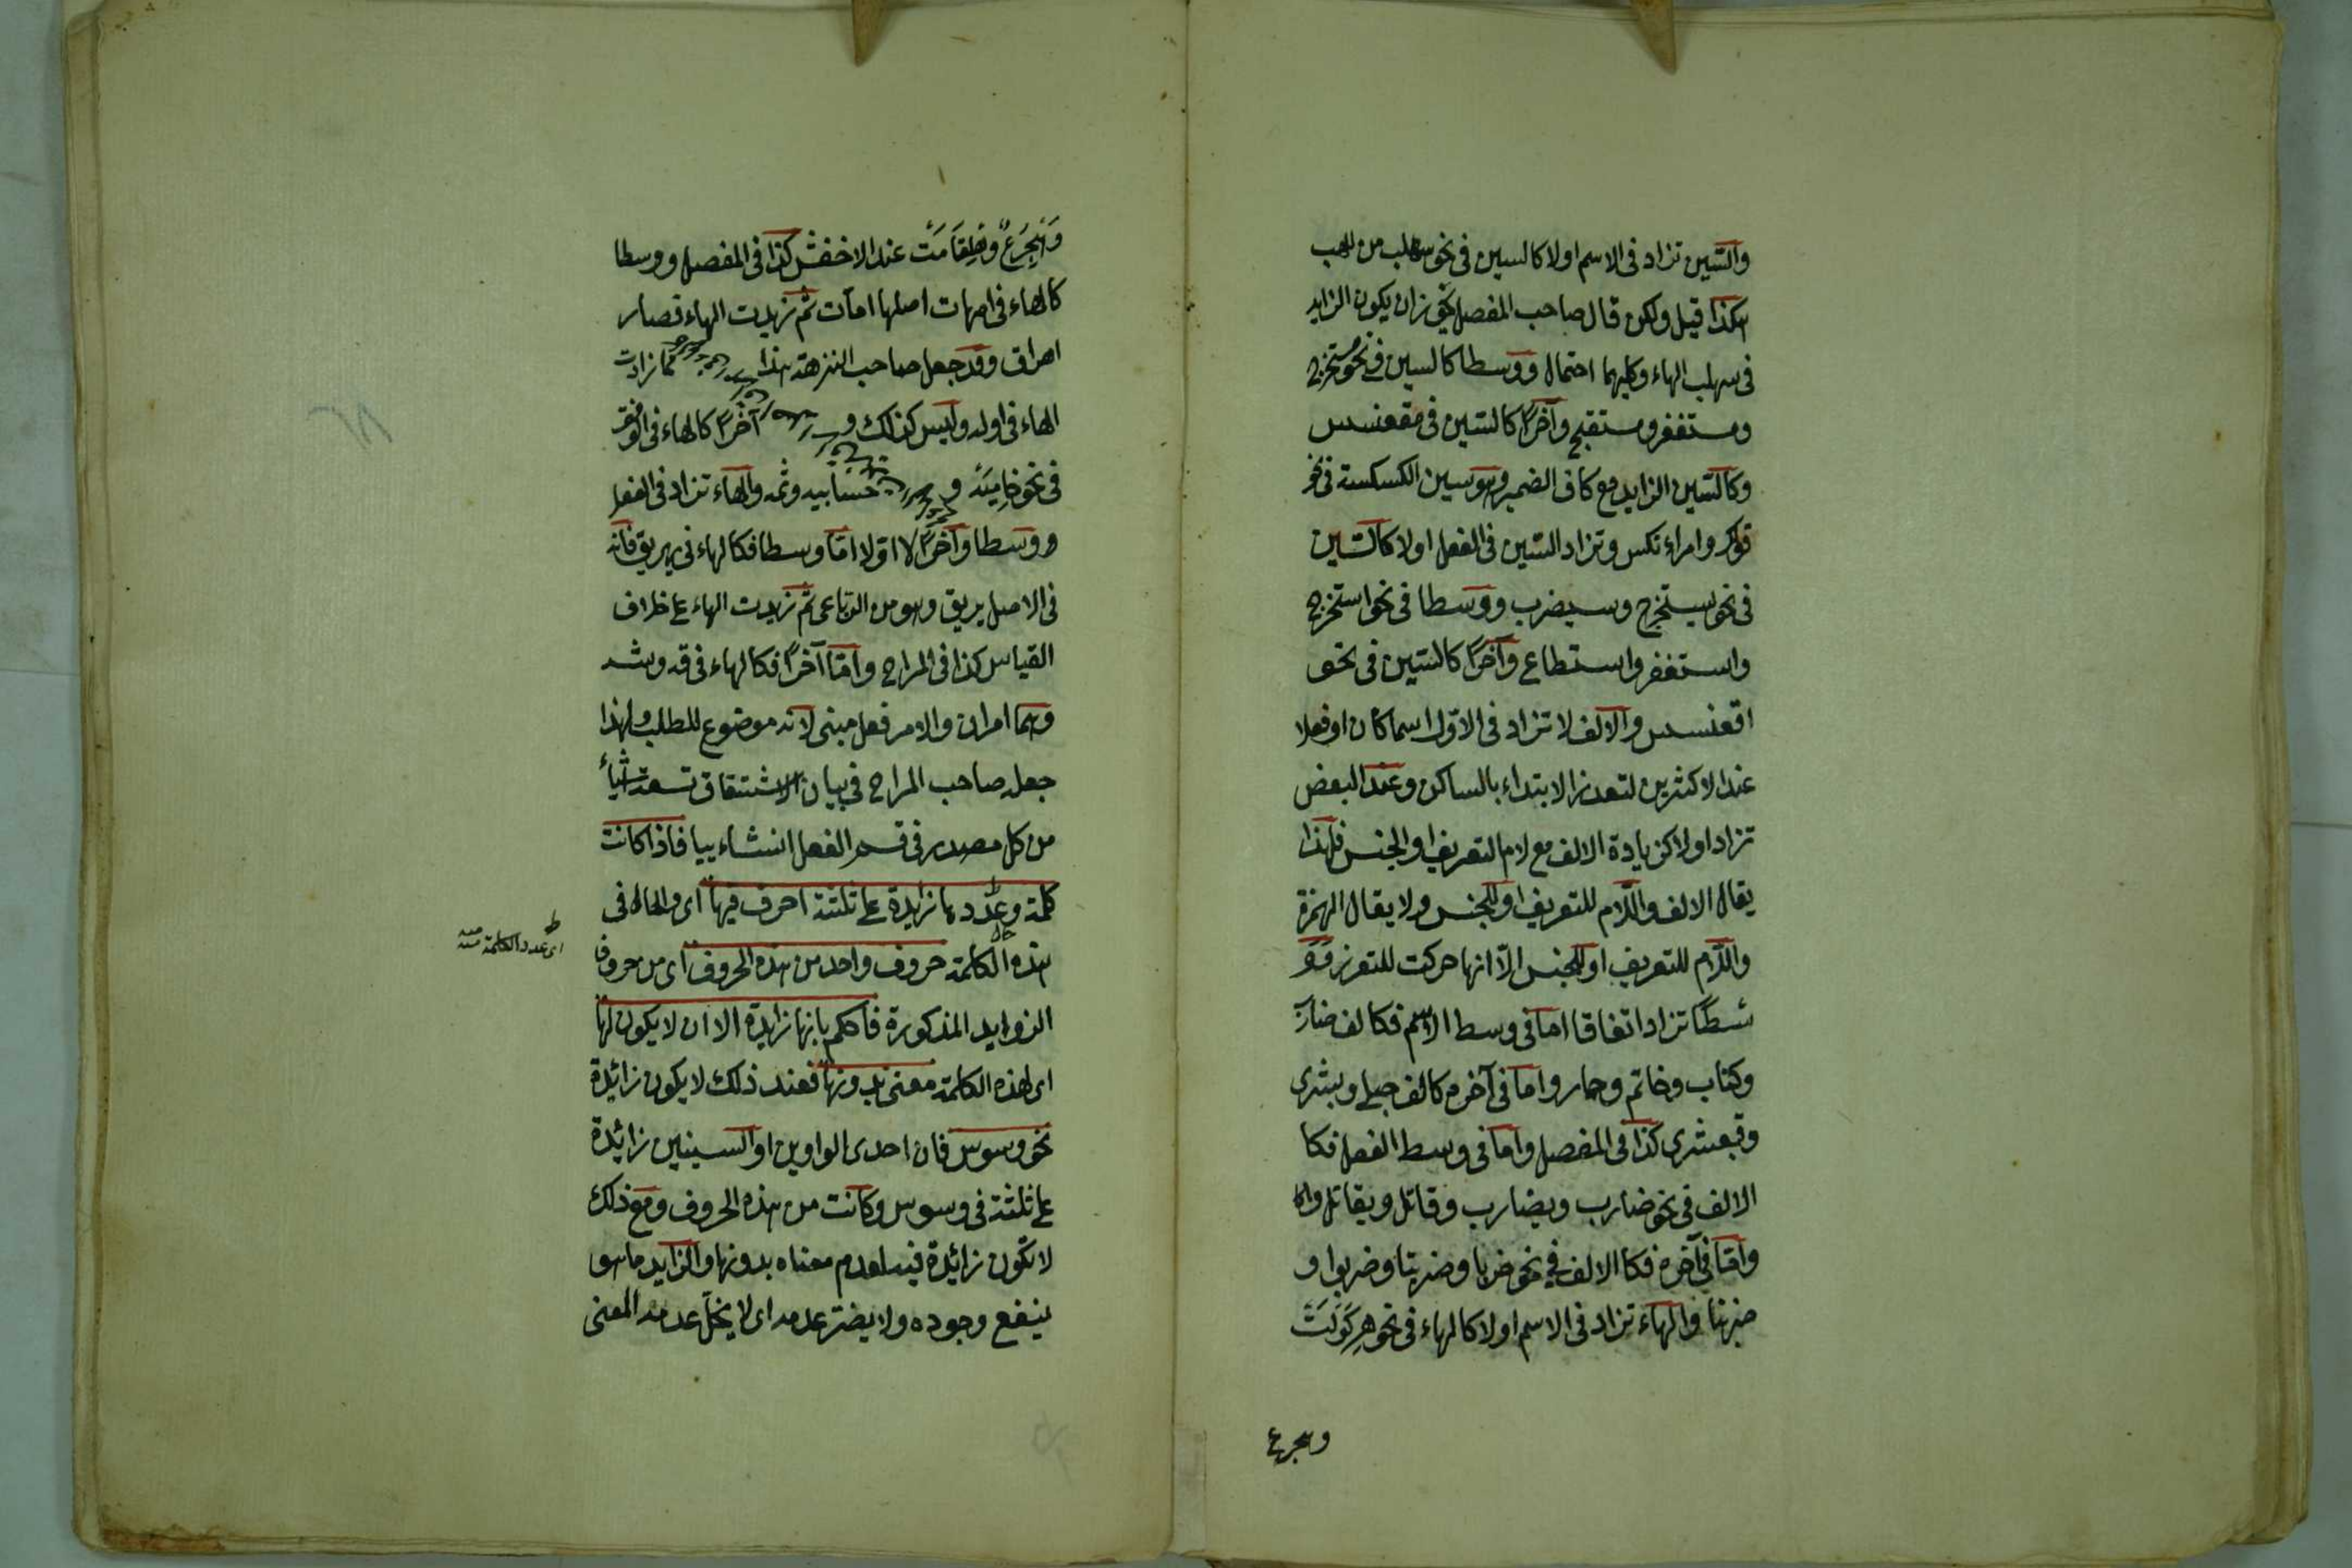 والسين تزاد في الاسم اولا كالسين في نحو سهلب من لهب
هكذا قيل ولكن قال صاحب المفصل يجوز ان يكون الزايد
في سهلب الهاء وكليهما احتمال ووسطا كالسين في نحو مستخرج
ومستغفر ومستقبح وآخرًا كالسين في مقعنسس
وكالسين الزايد مع كاف الضمير وهو سين الكسكسة في نحو
قولك وامراء نكس وتزاد السين في الفعل اولا كالسين
في نحو سيتخرج وسيضرب ووسطا في نحو استخرج
واستغفر واستطاع وآخرًا كالسين في نحو
اقعنسس والالف لا تزاد في الاول اسما كان او فعلا
عند الاكثرين لتعذر الابتداء بالساكن وعند البعض
تزاد اولا كزيادة الالف مع لام التعريف او الجنس فلهذا
يقال الالف واللام للتعريف او للجنس ولا يقال الهمزة
واللام للتعريف او للجنس الّا انها حركت للتعزر
وسطًا تزاد اتفاقا اما في وسط الاسم فكالف ضارب
وكتاب وخاتم وحمار واما في آخره كالف حبلى وبشرى
وقبعثرى كذا في المفصل واما في وسط الفعل فكا
الالف في نحو ضارب ويضارب وقاتل ويقاتل
وامّا في آخره فكا الالف في نحو ضربا وضربتا وضربوا و
ضربنا والهاء تزاد في الاسم اولا كالهاء في نحو هركولت
وهجرع
وَهِجرَعٌ عند الاخفش كذا في المفصل ووسطا
كالهاء في امهات اصلها امآت ثم زيدت الهاء فصار
اهراق وقد جعل صاحب النزهة هذا مما زادت
الهاء في اوله وليس كذلك و آخرًا كالهاء في الوقف
في نحو و حسابيه وثمه والهاء تزاد في الفعل
ووسطا وآخرًا لا اوّلا امّا وسطا فكالهاء في يهريق فانه
في الاصل يريق وهو من الرباعى ثم زيدت الهاء على خلاف
القياس كذا في المراح وامّا آخرًا فكالهاء في قه وشه
وهما امران والامر فعل مبنى لانه موضوع للطلب ولهذا
جعل صاحب المراح في بيان الاشتقاق تسعة اشياء
من كل مصدر في قسم الفعل انشاءييا فاذا كانت
كلمة وعدد ها زايدة على ثلثة احرف فيها اى والحال في
هذه الكلمة حروف واحد من هذه الحروف اى من حروف
اى عدد الكلمة منه
الزوايد المذكورة فاحكم بانها زايدة الا ان لا يكون لها
اى لهذه الكلمة معنى بدونها فعند ذلك لا يكون زائدة
نحو وسوس فان احدى الواوين او السينين زائدة
على ثلثة في وسوس وكانت من هذه الحروف ومع ذلك
لا تكون زائدة فيه لعدم معناه بدونها والزايد ما هو
ينفع وجوده ولا يضر عدمه اى لا يخلّ عدمه المعنى